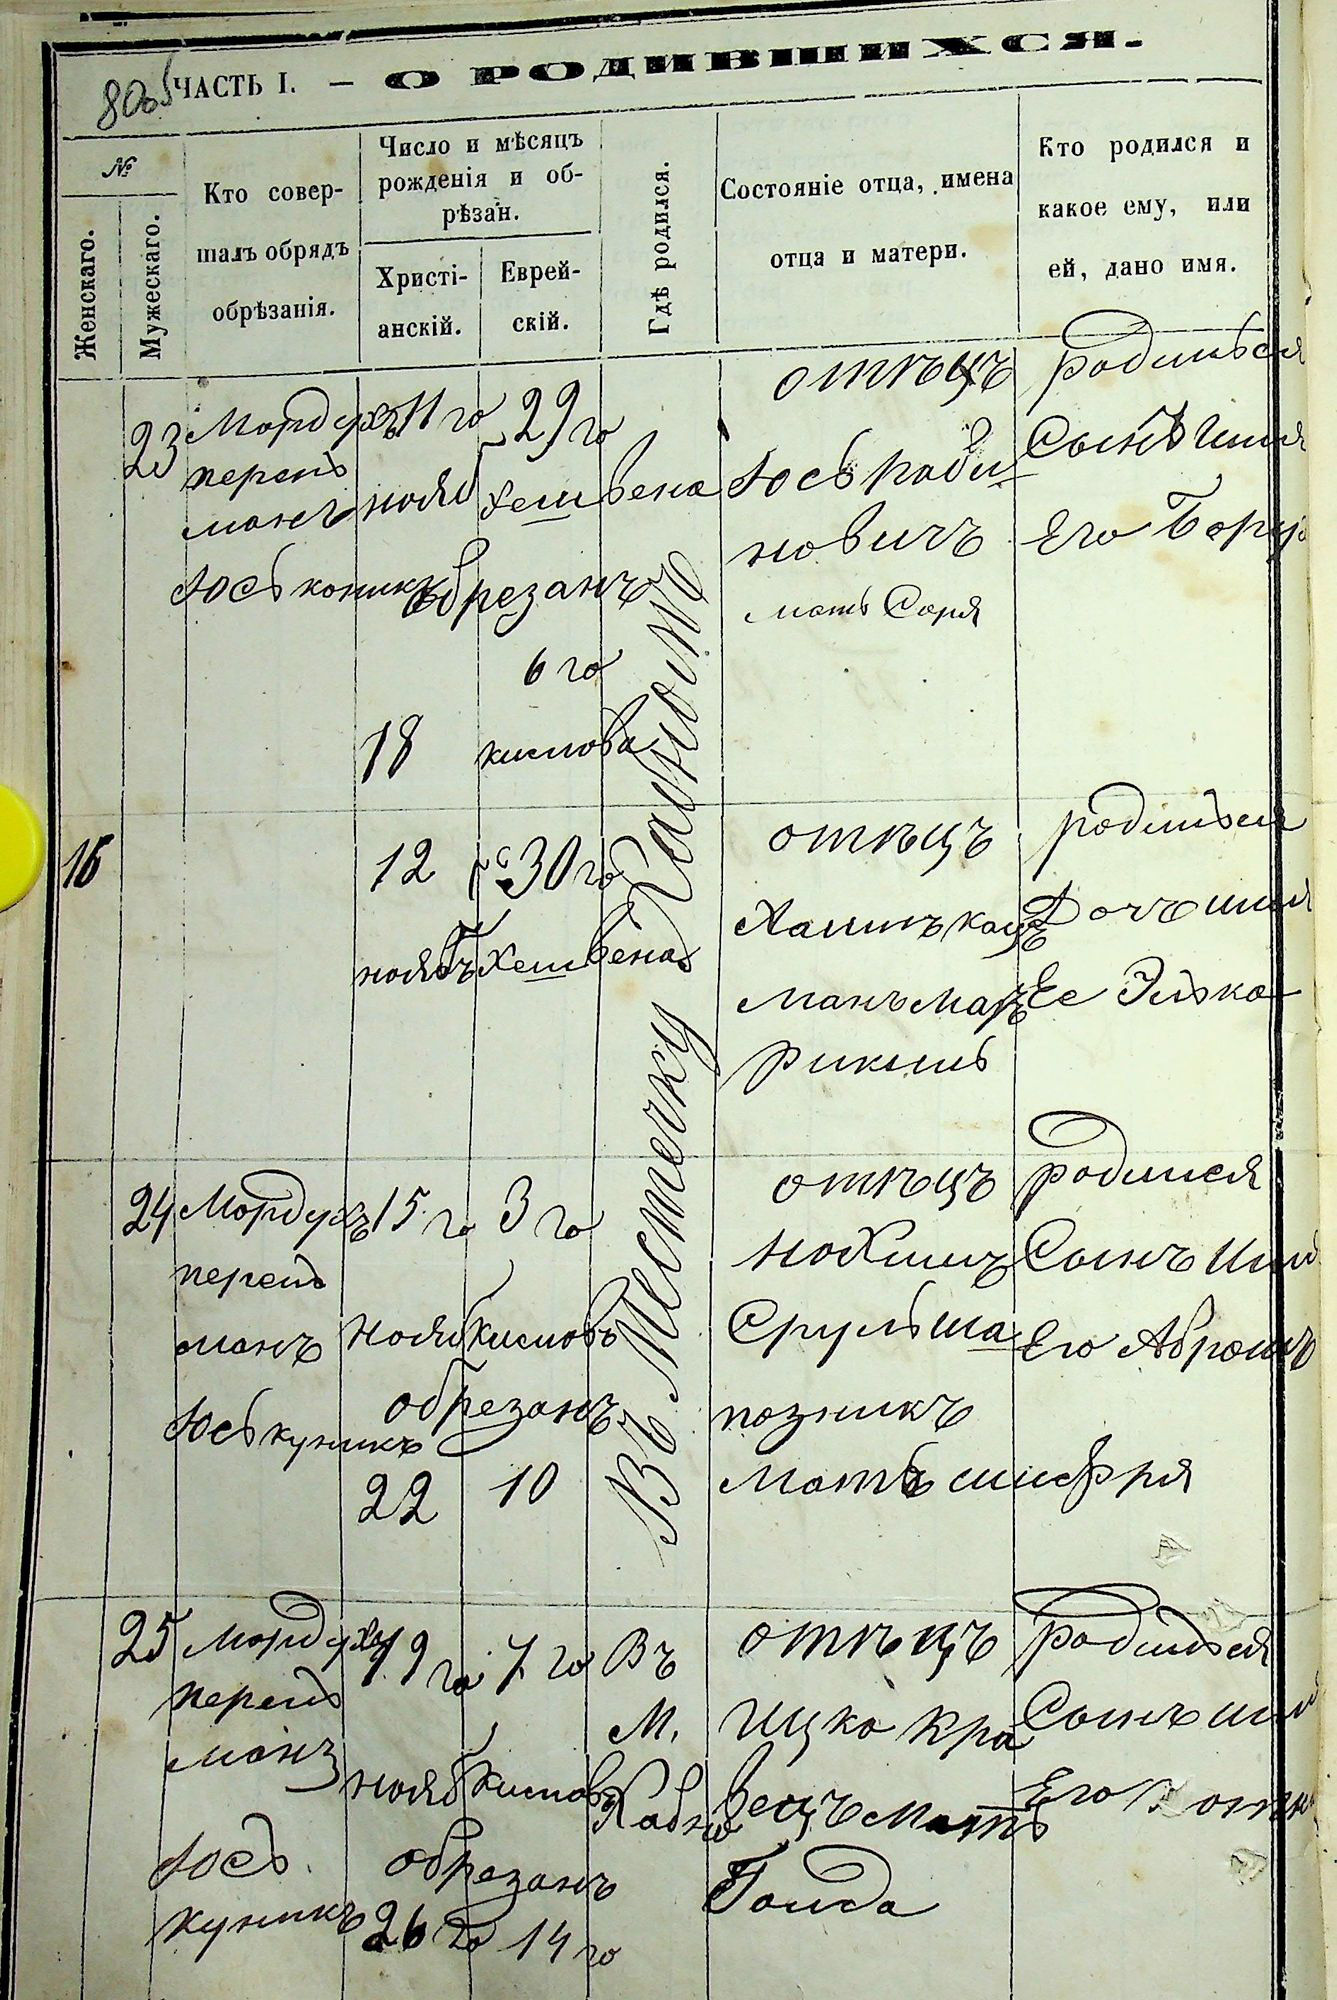 ЧАСТЬ I. — О РОДИВШИХСЯ.
№
Женскаго.
Мужескаго.
Кто совер-
шалъ обрядъ
обрѣзанія.
Число и мѣсяцъ
рожденія и об-
рѣзан.
Христі-
анскій.
Еврей-
скій.
Гдѣ родился.
Состояніе отца, имена
отца и матери.
Кто родился и
какое ему, или
ей, дано имя.
23
Мордухъ
перель
манъ
Юсь коникъ
11 го
нояб
29 го
Хешвена
обрезанъ
6 го
18
кислова
отецъ
Юсь раби
новичъ
мать Сора
родился
Сынъ имя
Его
Въ Местечку
16
12
ноябъ
30 го
Хешвена
отецъ
Хаимъ кац
манъ мать
рикль
родилься
Дочъ имя
Ее Элька
24
Мордухъ
перель
манъ
Юсь куникъ
15 го
нояб
3 го
кисловъ
обрезанъ
22
10
отецъ
Нохимъ
Срулъ ша
позникъ
Мать шифря
родился
Сынъ имя
Его Абрамъ
25
Мордухъ
перель
манъ
Юсь
куникъ
19 го
нояб
7 го
кислова
обрезанъ
26 го
14 го
Въ
М.
отецъ
Ицко Кра
вецъ Мать
Голда
родилься
Сынъ имя
Его